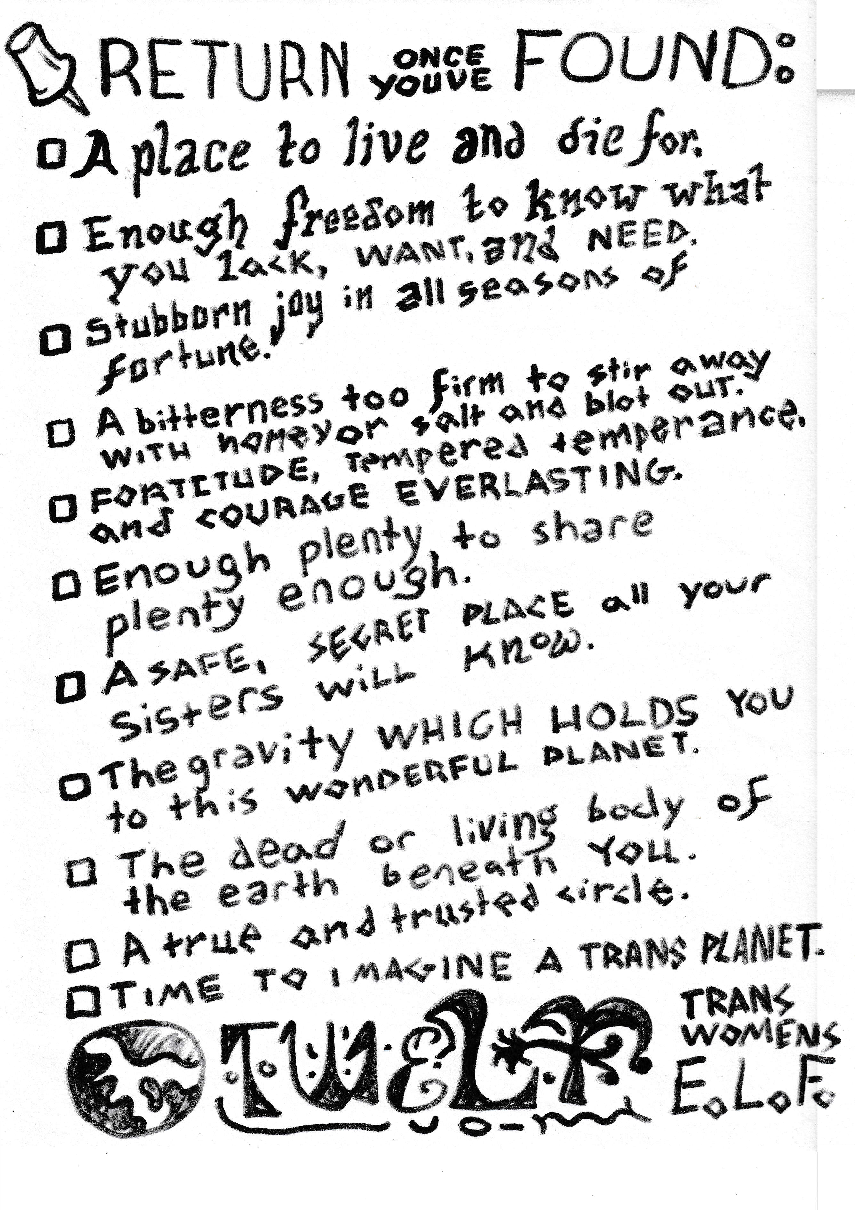 RETURN ONCE YOUVE FOUND:
A place to live and die for.
Enough freedom to know what
you lack, WANT, and NEED.
Stubborn joy in all seasons of
fortune.
A bitterness too firm to stir away
WITH honey or salt and blot out.
FORTITUDE, Tempered temperance,
and COURAGE EVERLASTING.
Enough plenty to share
plenty enough.
A SAFE, SECRET PLACE all your
Sisters WILL Know.
The gravity WHICH HOLDS YOU
to this WONDERFUL PLANET.
The dead or living body of
the earth beneath YOU.
A true and trusted circle.
TIME TO IMAGINE A TRANS PLANET.
TWELF
TRANS
WOMENS
E.L.F.